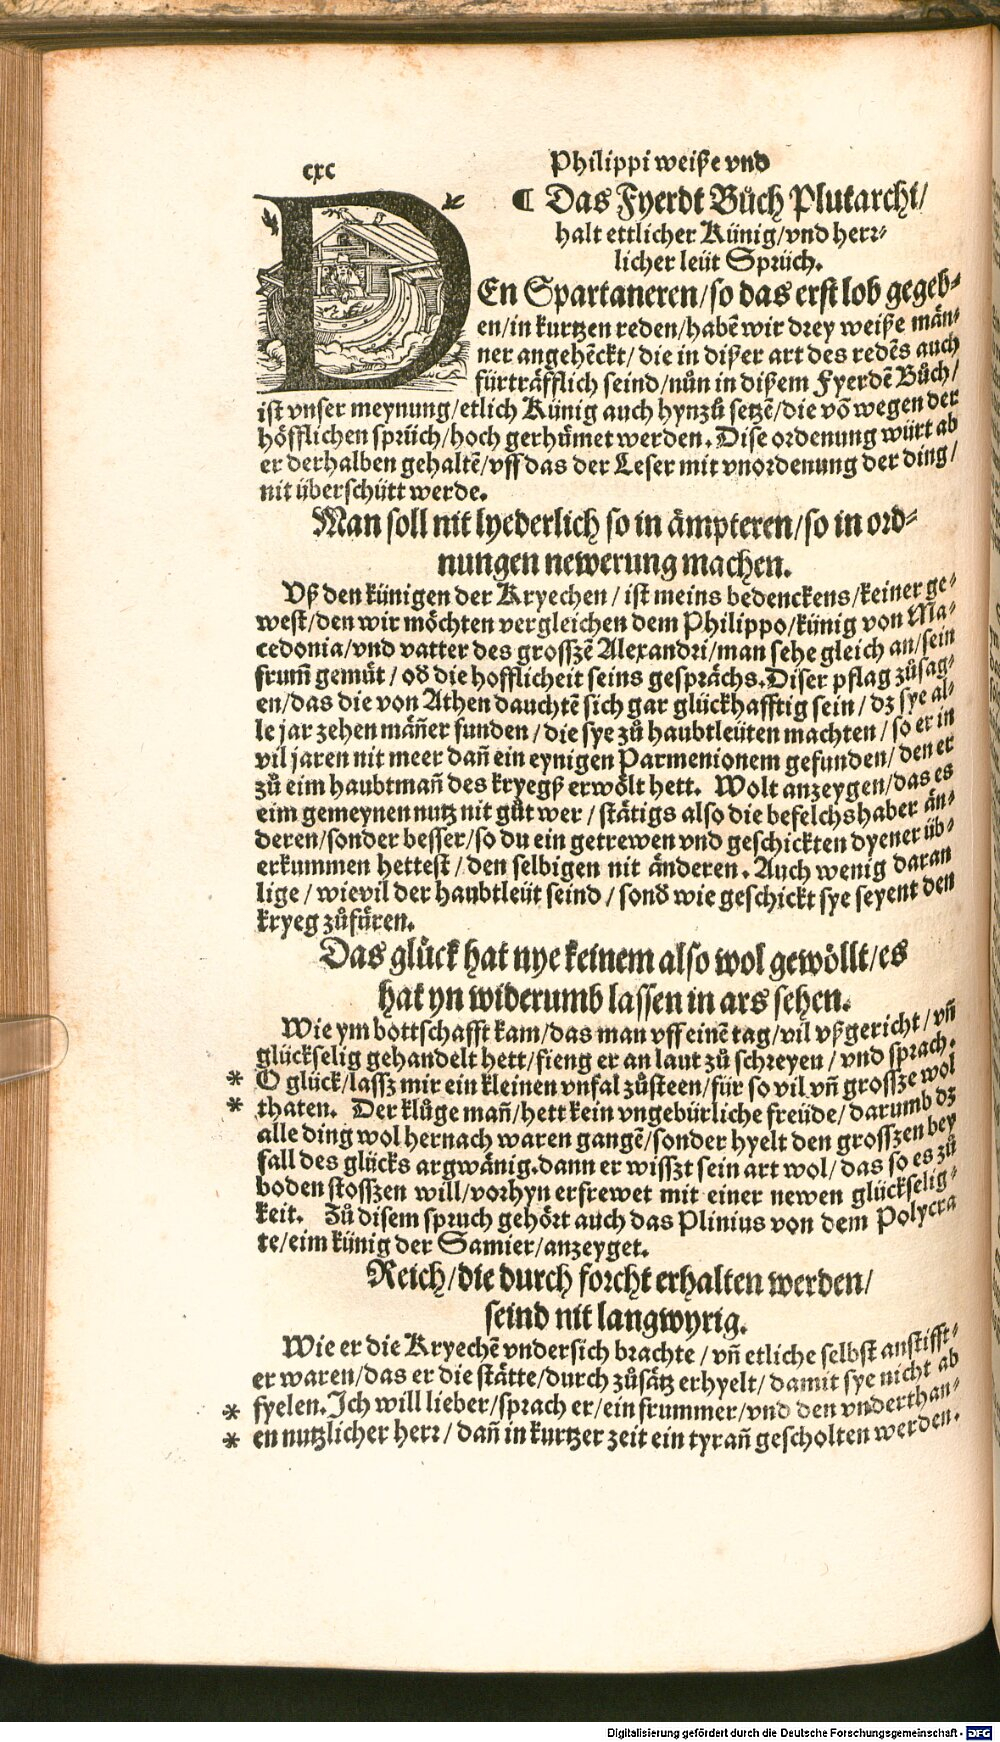 cxc
Philippi weiße vnd
¶ Das Fyerdt Bůch Plutarchi/
halt ettlicher Künig/vnd herr⸗
licher leüt Sprüch.
DEn Spartaneren/so das erst lob gegeb⸗
en/in kurtzen reden/habẽ wir drey weiße män⸗
ner angehẽckt/die in dißer art des redẽs auch
fürträfflich seind/nůn in dißem Fyerdẽ Bůch/
ist vnser meynung/etlich Künig auch hynzů setzẽ/die võ wegen der
höfflichen sprüch/hoch gerhümet werden. Dise ordenung würt ab
er derhalben gehaltẽ/vff das der Leser mit vnordenung der ding/
nit überschütt werde.
Man soll nit lyederlich so in ämpteren/so in ord⸗
nungen newerung machen.
Vß den künigen der Kryechen/ist meins bedenckens/keiner ge⸗
west/den wir möchten vergleichen dem Philippo/künig von Ma⸗
cedonia/vnd vatter des grosszẽ Alexandri/man sehe gleich an/sein
frum̃ gemüt/oď die hofflicheit seins gesprächs. Diser pflag zůsag⸗
en/das die von Athen dauchtẽ sich gar glückhafftig sein/dz sye al⸗
le jar zehen mäñer funden/die sye zů haubtleüten machten/so er in
vil jaren nit meer dañ ein eynigen Parmenionem gefunden/den er
zů eim haubtmañ des kryegß erwölt hett. Wolt anzeygen/das es
eim gemeynen nutz nit gůt wer/stätigs also die befelchshaber än⸗
deren/sonder besser/so du ein getrewen vnd geschickten dyener üb⸗
erkummen hettest/den selbigen nit änderen. Auch wenig daran
lige/wievil der haubtleüt seind/sonď wie geschickt sye seyent den
kryeg zůfüren.
Das glück hat nye keinem also wol gewöllt/es
hat yn widerumb lassen in ars sehen.
Wie ym bottschafft kam/das man vff einẽ tag/vil vßgericht/vñ
glückselig gehandelt hett/fieng er an laut zů schreyen/vnd sprach.
* O glück/lassz mir ein kleinen vnfal zůsteen/für so vil vñ grossze wol
* thaten. Der klůge mañ/hett kein vngebürliche freüde/darumb dz
alle ding wol hernach waren gangẽ/sonder hyelt den grosszen bey
fall des glücks argwänig. dann er wisszt sein art wol/das so es zů
boden stosszen will/vorhyn erfrewet mit einer newen glückselig⸗
keit. Zů disem spruch gehört auch das Plinius von dem Polycra
te/eim künig der Samier/anzeyget.
Reich/die durch forcht erhalten werden/
seind nit langwyrig.
Wie er die Kryechẽ vndersich brachte/vñ etliche selbst anstifft⸗
er waren/das er die stätte/durch zůsätz erhyelt/damit sye nicht ab
* fyelen. Ich will lieber/sprach er/ein frummer/vnd den vnderthan⸗
* en nutzlicher herr/dañ in kurtzer zeit ein tyrañ gescholten werden.
Digitalisierung gefördert durch die Deutsche Forschungsgemeinschaft - DFG